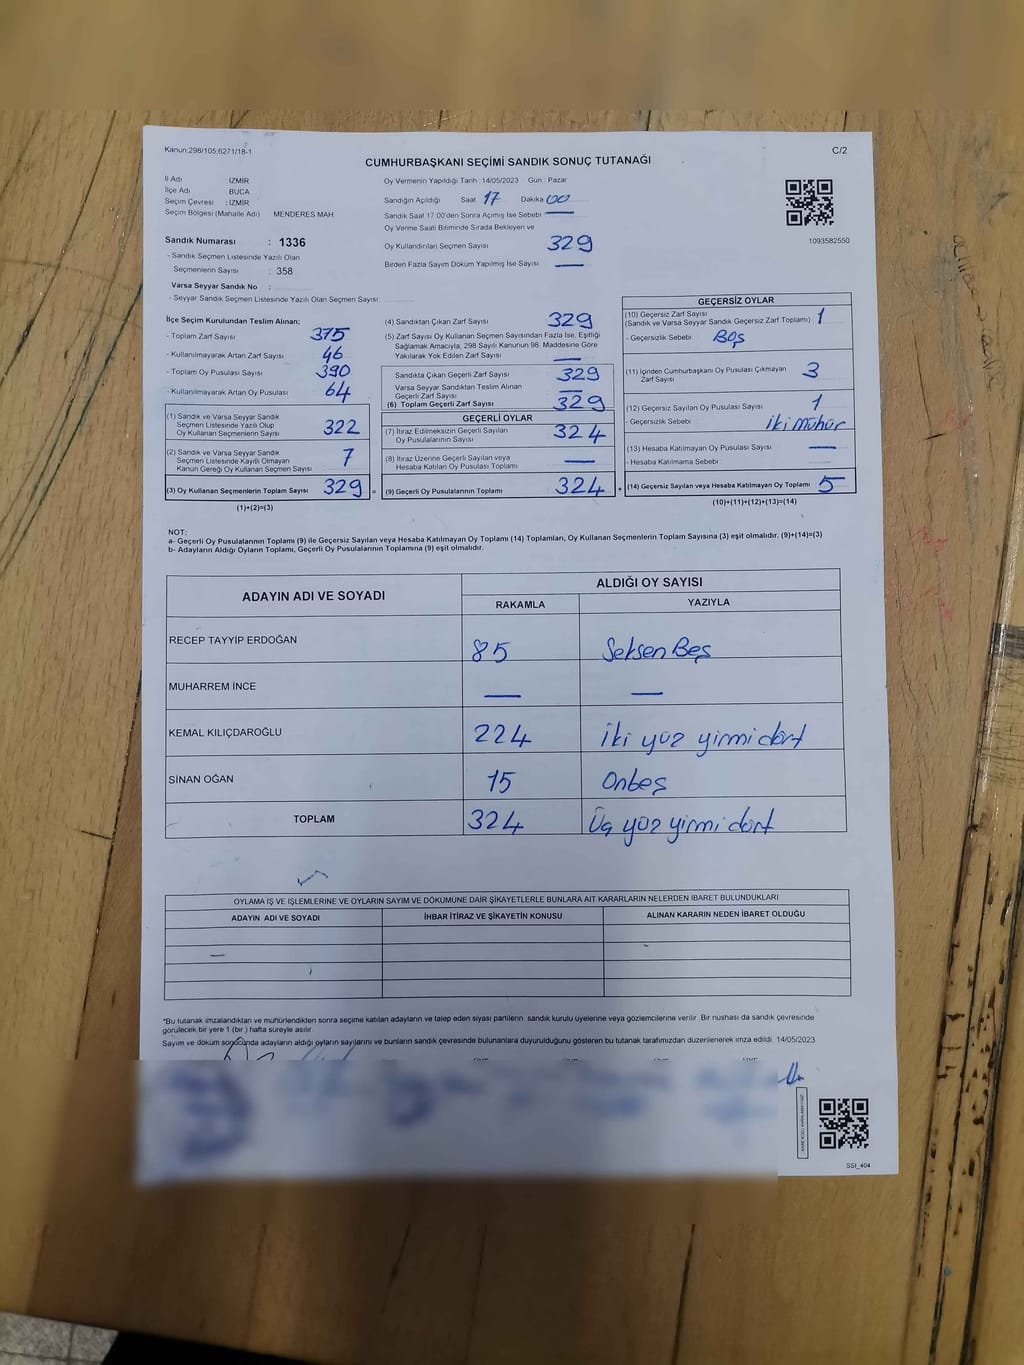 Kanun:298/105;6271/18-1
C/2
CUMHURBAŞKANI SEÇİMİ SANDIK SONUÇ TUTANAĞI
İl Adı : İZMİR
İlçe Adı : BUCA
Seçim Çevresi : İZMİR
Seçim Bölgesi (Mahalle Adı) MENDERES MAH
Sandık Numarası : 1336
- Sandık Seçmen Listesinde Yazılı Olan
Seçmenlerin Sayısı : 358
Varsa Seyyar Sandık No :
- Seyyar Sandık Seçmen Listesinde Yazılı Olan Seçmen Sayısı:
Oy Vermenin Yapıldığı Tarih : 14/05/2023 Gün : Pazar
Sandığın Açıldığı Saat 17 Dakika 00
Sandık Saat 17:00'den Sonra Açımış İse Sebebi —
Oy Verme Saati Bitiminde Sırada Bekleyen ve
Oy Kullandırılan Seçmen Sayısı 329
Birden Fazla Sayım Döküm Yapılmış İse Sayısı —
1093582550
İlçe Seçim Kurulundan Teslim Alınan:
- Toplam Zarf Sayısı 375
- Kullanılmayarak Artan Zarf Sayısı 46
- Toplam Oy Pusulası Sayısı 390
- Kullanılmayarak Artan Oy Pusulası 64
(1) Sandık ve Varsa Seyyar Sandık
Seçmen Listesinde Yazılı Olup
Oy Kullanan Seçmenlerin Sayısı 322
(2) Sandık ve Varsa Seyyar Sandık
Seçmen Listesinde Kayıtlı Olmayan
Kanun Gereği Oy Kullanan Seçmen Sayısı 7
(3) Oy Kullanan Seçmenlerin Toplam Sayısı 329 =
(1)+(2)=(3)
(4) Sandıktan Çıkan Zarf Sayısı 329
(5) Zarf Sayısı Oy Kullanan Seçmen Sayısından Fazla İse, Eşitliği
Sağlamak Amacıyla, 298 Sayılı Kanunun 98. Maddesine Göre
Yakılarak Yok Edilen Zarf Sayısı —
Sandıkta Çıkan Geçerli Zarf Sayısı 329
Varsa Seyyar Sandıktan Teslim Alınan
Geçerli Zarf Sayısı —
(6) Toplam Geçerli Zarf Sayısı 329
GEÇERLİ OYLAR
(7) İtiraz Edilmeksizin Geçerli Sayılan
Oy Pusulalarının Sayısı 324
(8) İtiraz Üzerine Geçerli Sayılan veya
Hesaba Katılan Oy Pusulası Toplamı —
(9) Geçerli Oy Pusulalarının Toplamı 324 +
GEÇERSİZ OYLAR
(10) Geçersiz Zarf Sayısı
(Sandık ve Varsa Seyyar Sandık Geçersiz Zarf Toplamı) 1
- Geçersizlik Sebebi : Boş
(11) İçinden Cumhurbaşkanı Oy Pusulası Çıkmayan
Zarf Sayısı 3
(12) Geçersiz Sayılan Oy Pusulası Sayısı 1
- Geçersizlik Sebebi : iki mühür
(13) Hesaba Katılmayan Oy Pusulası Sayısı —
- Hesaba Katılmama Sebebi —
(14) Geçersiz Sayılan veya Hesaba Katılmayan Oy Toplamı 5
(10)+(11)+(12)+(13)=(14)
NOT:
a- Geçerli Oy Pusulalarının Toplamı (9) ile Geçersiz Sayılan veya Hesaba Katılmayan Oy Toplamı (14) Toplamları, Oy Kullanan Seçmenlerin Toplam Sayısına (3) eşit olmalıdır. (9)+(14)=(3)
b- Adayların Aldığı Oyların Toplamı, Geçerli Oy Pusulalarının Toplamına (9) eşit olmalıdır.
ADAYIN ADI VE SOYADI
ALDIĞI OY SAYISI
RAKAMLA YAZIYLA
RECEP TAYYİP ERDOĞAN 85 Seksen Beş
MUHARREM İNCE — —
KEMAL KILIÇDAROĞLU 224 İki yüz yirmi dört
SİNAN OĞAN 15 Onbeş
TOPLAM 324 Üç yüz yirmi dört
OYLAMA İŞ VE İŞLEMLERİNE VE OYLARIN SAYIM VE DÖKÜMÜNE DAİR ŞİKAYETLERLE BUNLARA AİT KARARLARIN NELERDEN İBARET BULUNDUKLARI
ADAYIN ADI VE SOYADI İHBAR İTİRAZ VE ŞİKAYETİN KONUSU ALINAN KARARIN NEDEN İBARET OLDUĞU
*Bu tutanak imzalandıktan ve mühürlendikten sonra seçime katılan adayların ve talep eden siyasi partilerin sandık kurulu üyelerine veya gözlemcilerine verilir. Bir nüshası da sandık çevresinde
görülecek bir yere 1 (bir ) hafta süreyle asılır.
Sayım ve döküm sonucunda adayların aldığı oyların sayılarını ve bunların sandık çevresinde bulunanlara duyurulduğunu gösteren bu tutanak tarafımızdan düzenlenerek imza edildi. 14/05/2023
SSI_404